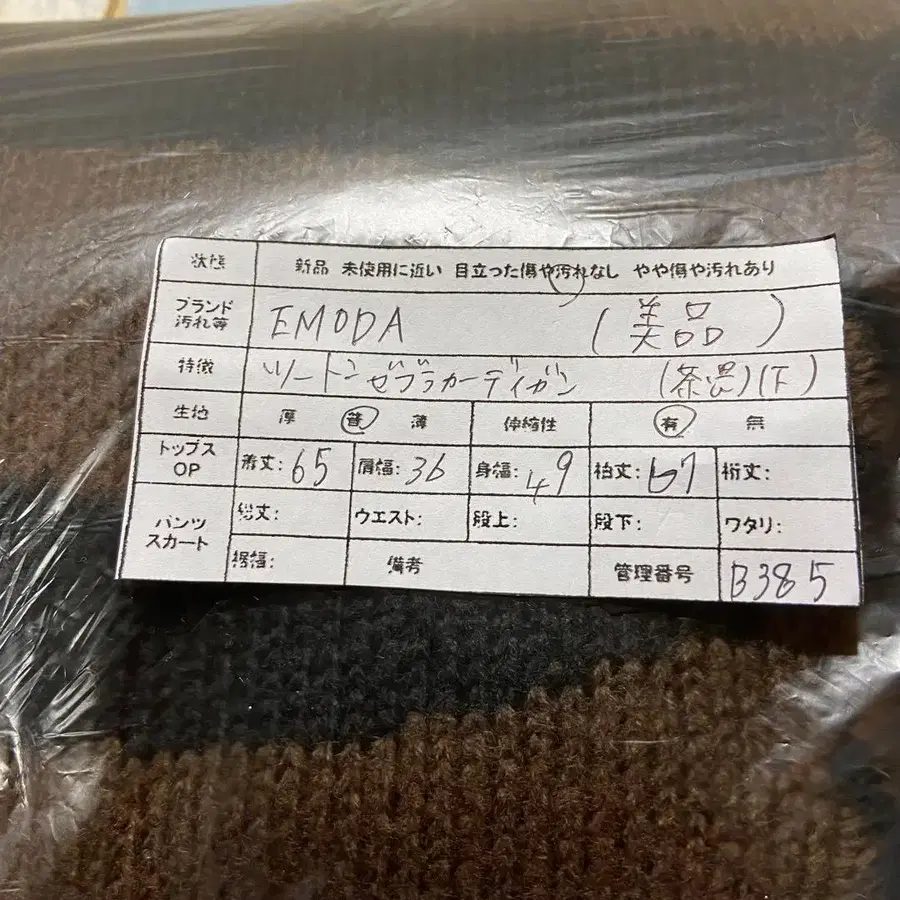 状態 新品 未使用に近い 目立った傷や汚れなし やや傷や汚れあり
ブランド
汚れ等
EMODA (美品)
特徴 ツートンゼブラカーディガン (茶黒)(下)
生地 厚 普 薄 伸縮性 有 無
トップス
OP
着丈: 65 肩幅: 36 身幅: 49 袖丈: 67 裄丈:
パンツ
スカート
総丈: ウエスト: 股上: 股下: ワタリ:
裾幅: 備考 管理番号 B385